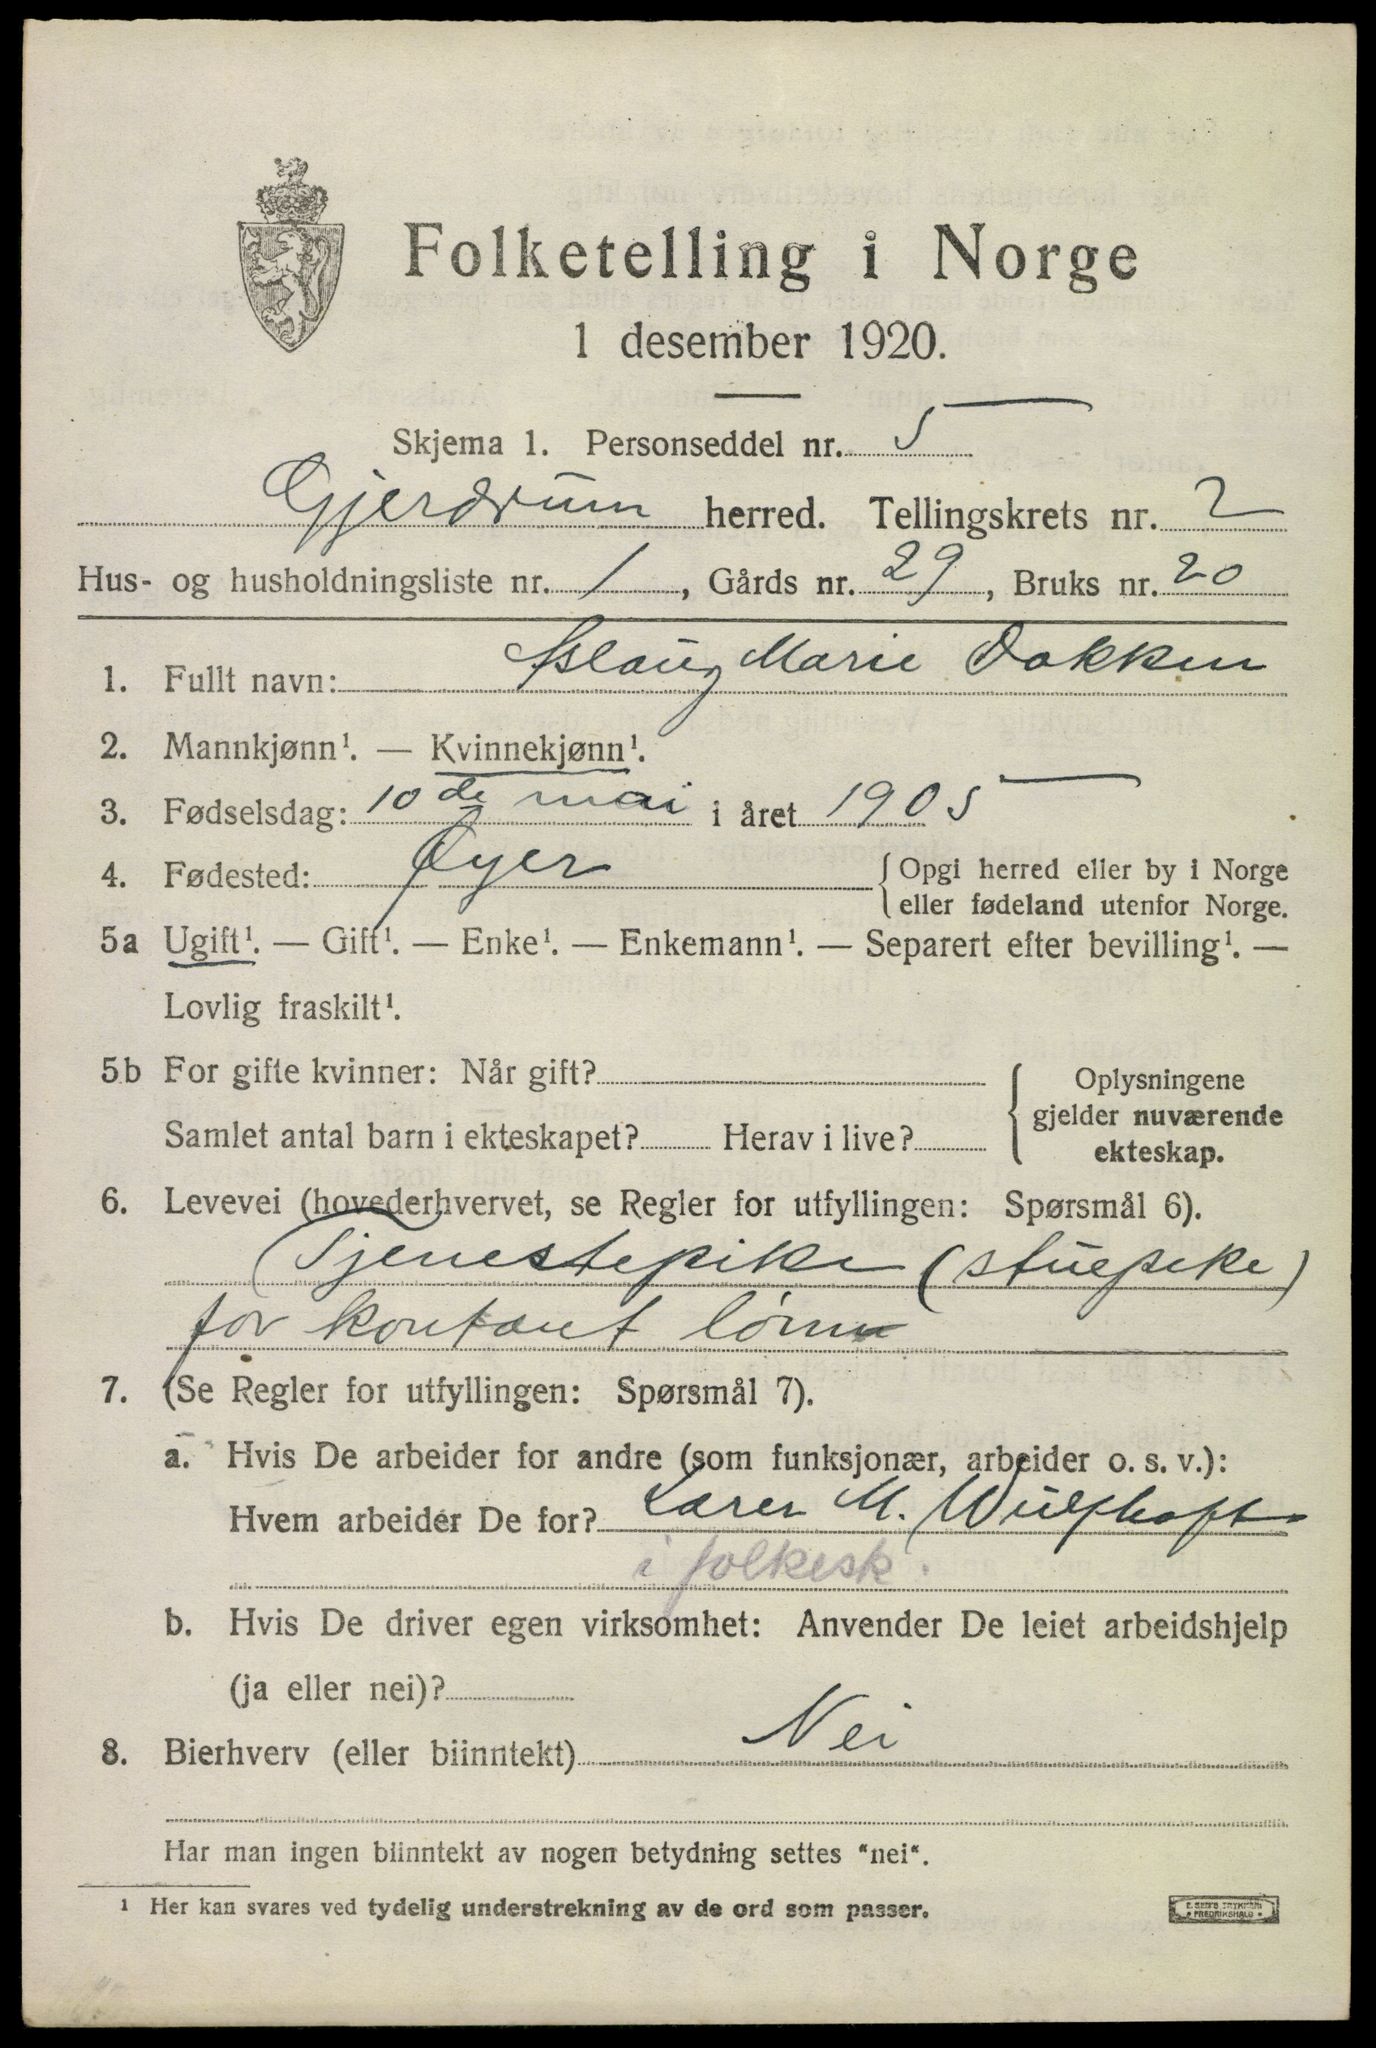 Folketelling i Norge
1 desember 1920.
Skjema 1. Personseddel nr. 5
Gjerdrum herred. Tellingskrets nr. 2
Hus- og husholdningsliste nr. 1, Gårds nr. 29, Bruks nr. 20
1. Fullt navn: Aslaug Marie Dokken
2. Mannkjønn¹. — Kvinnekjønn¹.
3. Fødselsdag: 10de mai i året 1905
4. Fødested: Øyer {Opgi herred eller by i Norge
eller fødeland utenfor Norge.
5a Ugift¹. — Gift¹. — Enke¹. — Enkemann¹. — Separert efter bevilling¹. —
Lovlig fraskilt¹.
5b For gifte kvinner: Når gift?
Samlet antal barn i ekteskapet? Herav i live?
{Oplysningene
gjelder nuværende
ekteskap.
6. Levevei (hovederhvervet, se Regler for utfyllingen: Spørsmål 6).
Tjenestepike (stuepike)
for kontant lønn
7. (Se Regler for utfyllingen: Spørsmål 7).
a. Hvis De arbeider for andre (som funksjonær, arbeider o. s. v.):
Hvem arbeider De for? Lærer M. Wulfhoft
i folkesk.
b. Hvis De driver egen virksomhet: Anvender De leiet arbeidshjelp
(ja eller nei)?
8. Bierhverv (eller biinntekt) Nei
Har man ingen biinntekt av nogen betydning settes "nei".
¹ Her kan svares ved tydelig understrekning av de ord som passer.
E. SEM'S TRYKKERI
FREDRIKSHALD